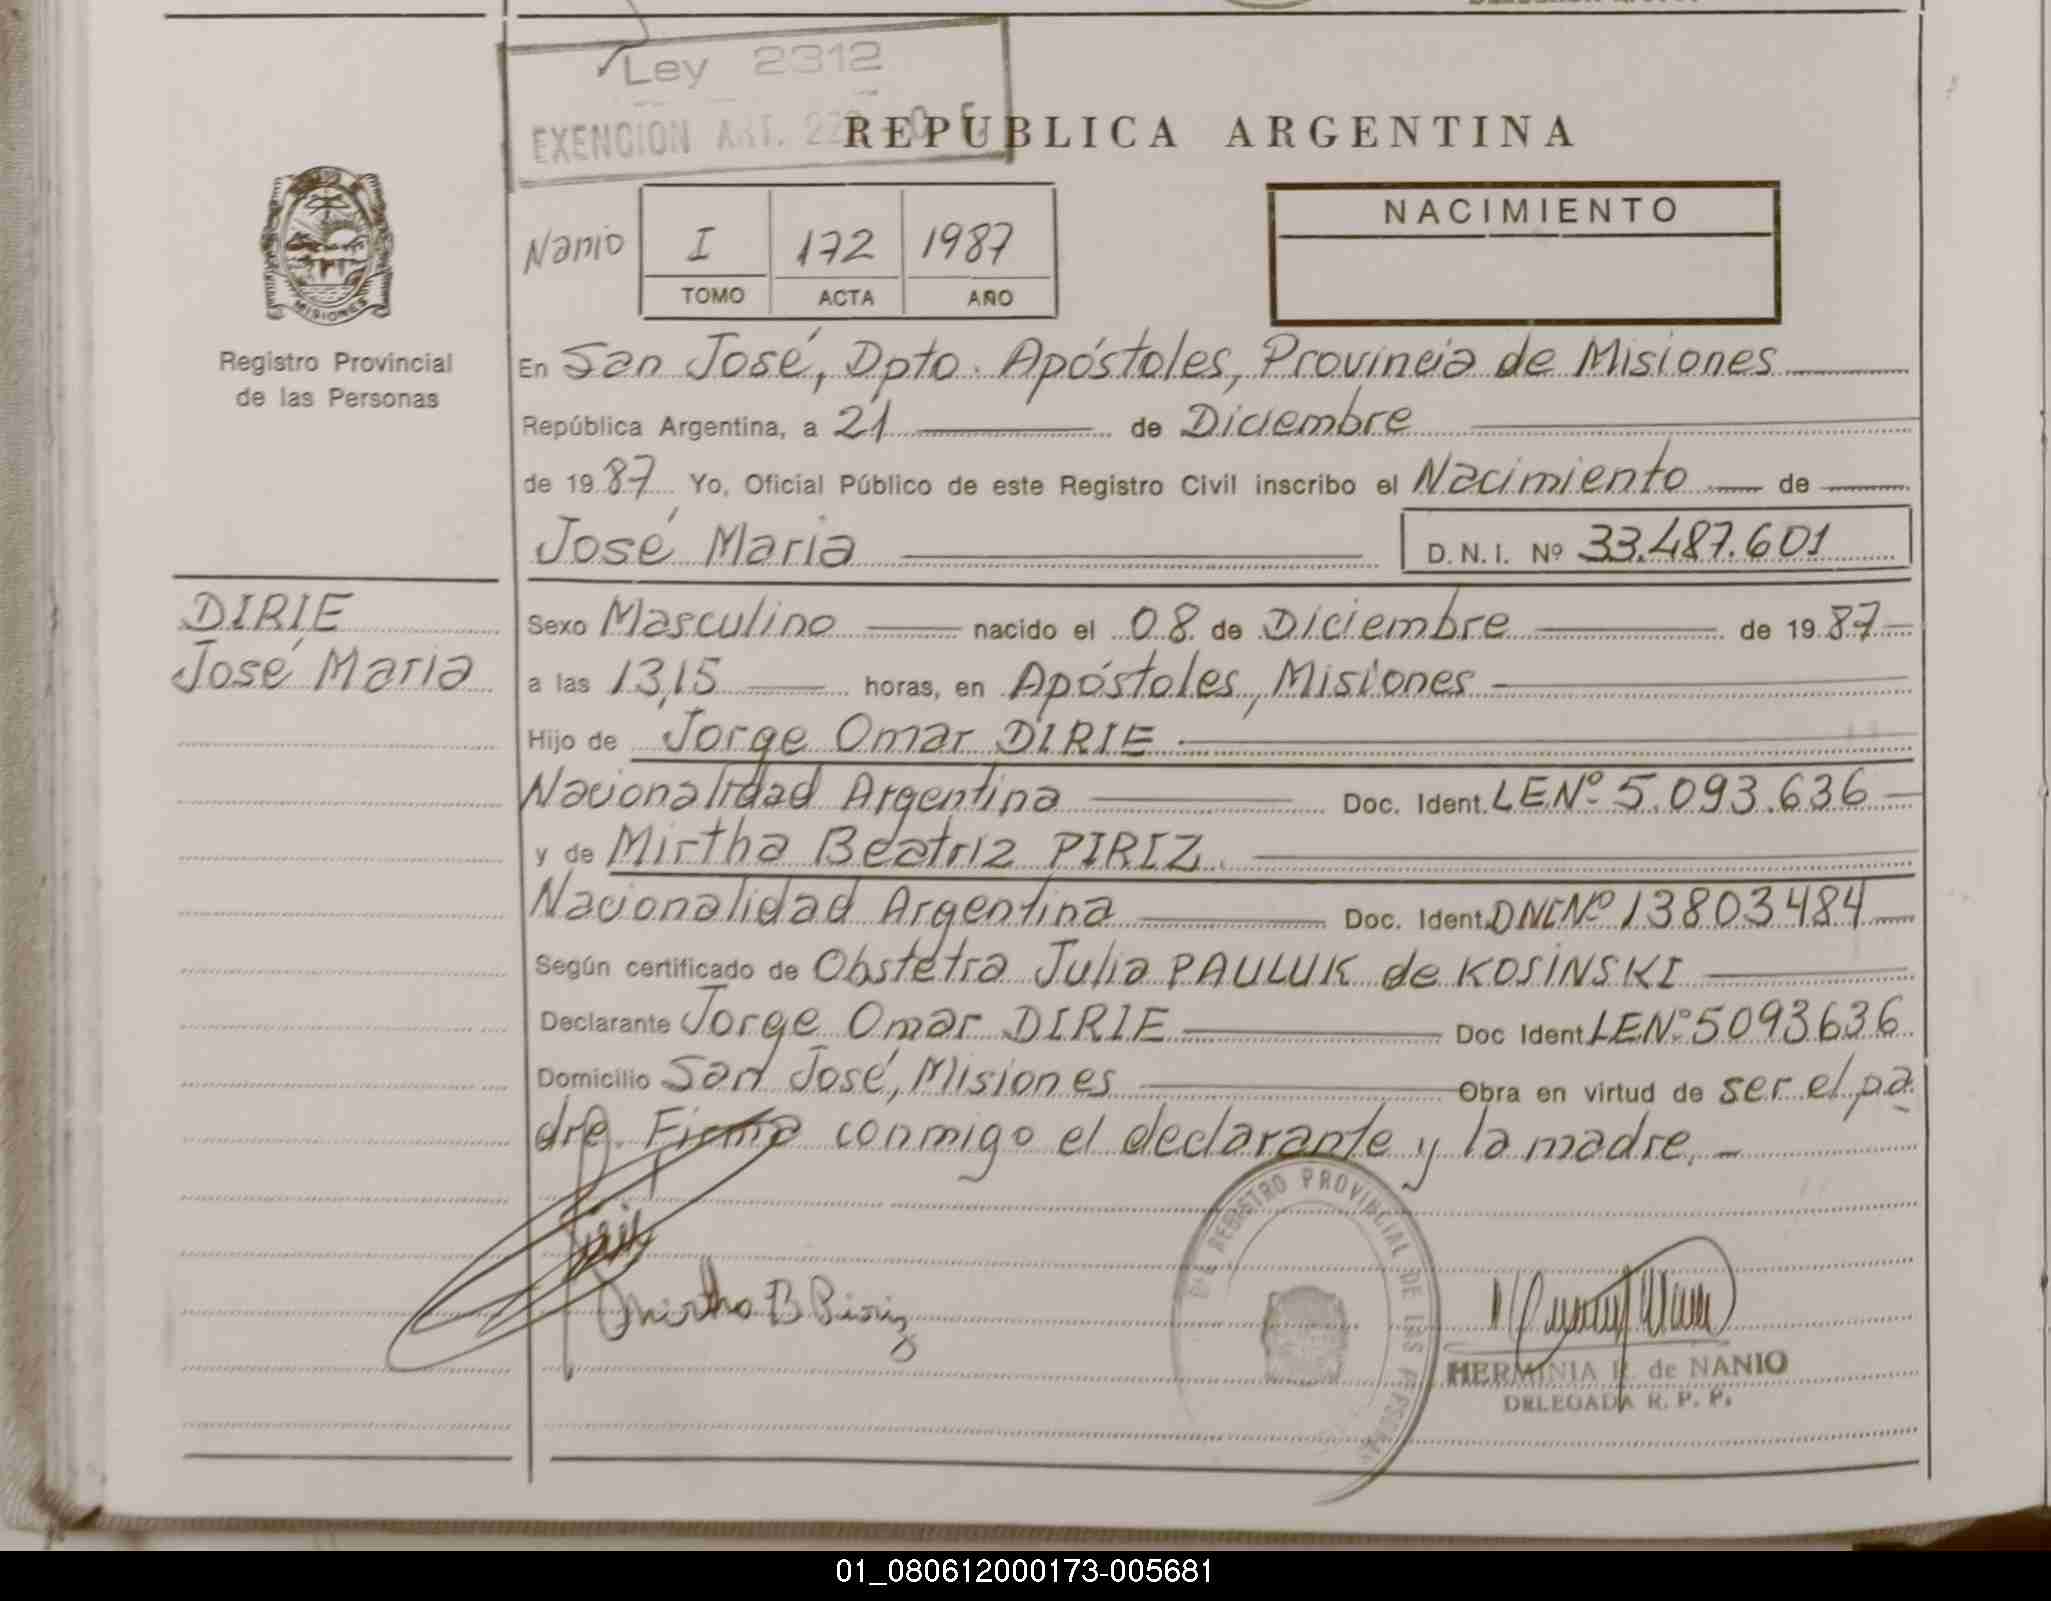 Ley 2312
EXENCION ART.
REPUBLICA ARGENTINA
MISIONES
Registro Provincial
de las Personas
Nanio I 172 1987
TOMO ACTA AÑO
NACIMIENTO
En San José, Dpto. Apóstoles, Provincia de Misiones
República Argentina, a 21 de Diciembre
de 1987 Yo, Oficial Público de este Registro Civil inscribo el Nacimiento de
José Maria D.N.I. Nº 33.487.601
DIRIE
José Maria
Sexo Masculino nacido el 08 de Diciembre de 1987
a las 13,15 horas, en Apóstoles, Misiones
Hijo de Jorge Omar DIRIE
Nacionalidad Argentina Doc. Ident. LENº 5.093.636
y de Mirtha Beatriz PIRIZ.
Nacionalidad Argentina Doc. Ident. DNINº 13803484
Según certificado de Obstetra Julia PAULUK de KOSINSKI
Declarante Jorge Omar DIRIE Doc Ident LENº 5093636
Domicilio San José, Misiones Obra en virtud de ser el pa
dre. Firma conmigo el declarante y la madre. -
Mirtha B Piriz
REGISTRO PROVINCIAL DE LAS PERSONAS
HERMINIA R. de NANIO
DELEGADA R. P. P.
01_080612000173-005681